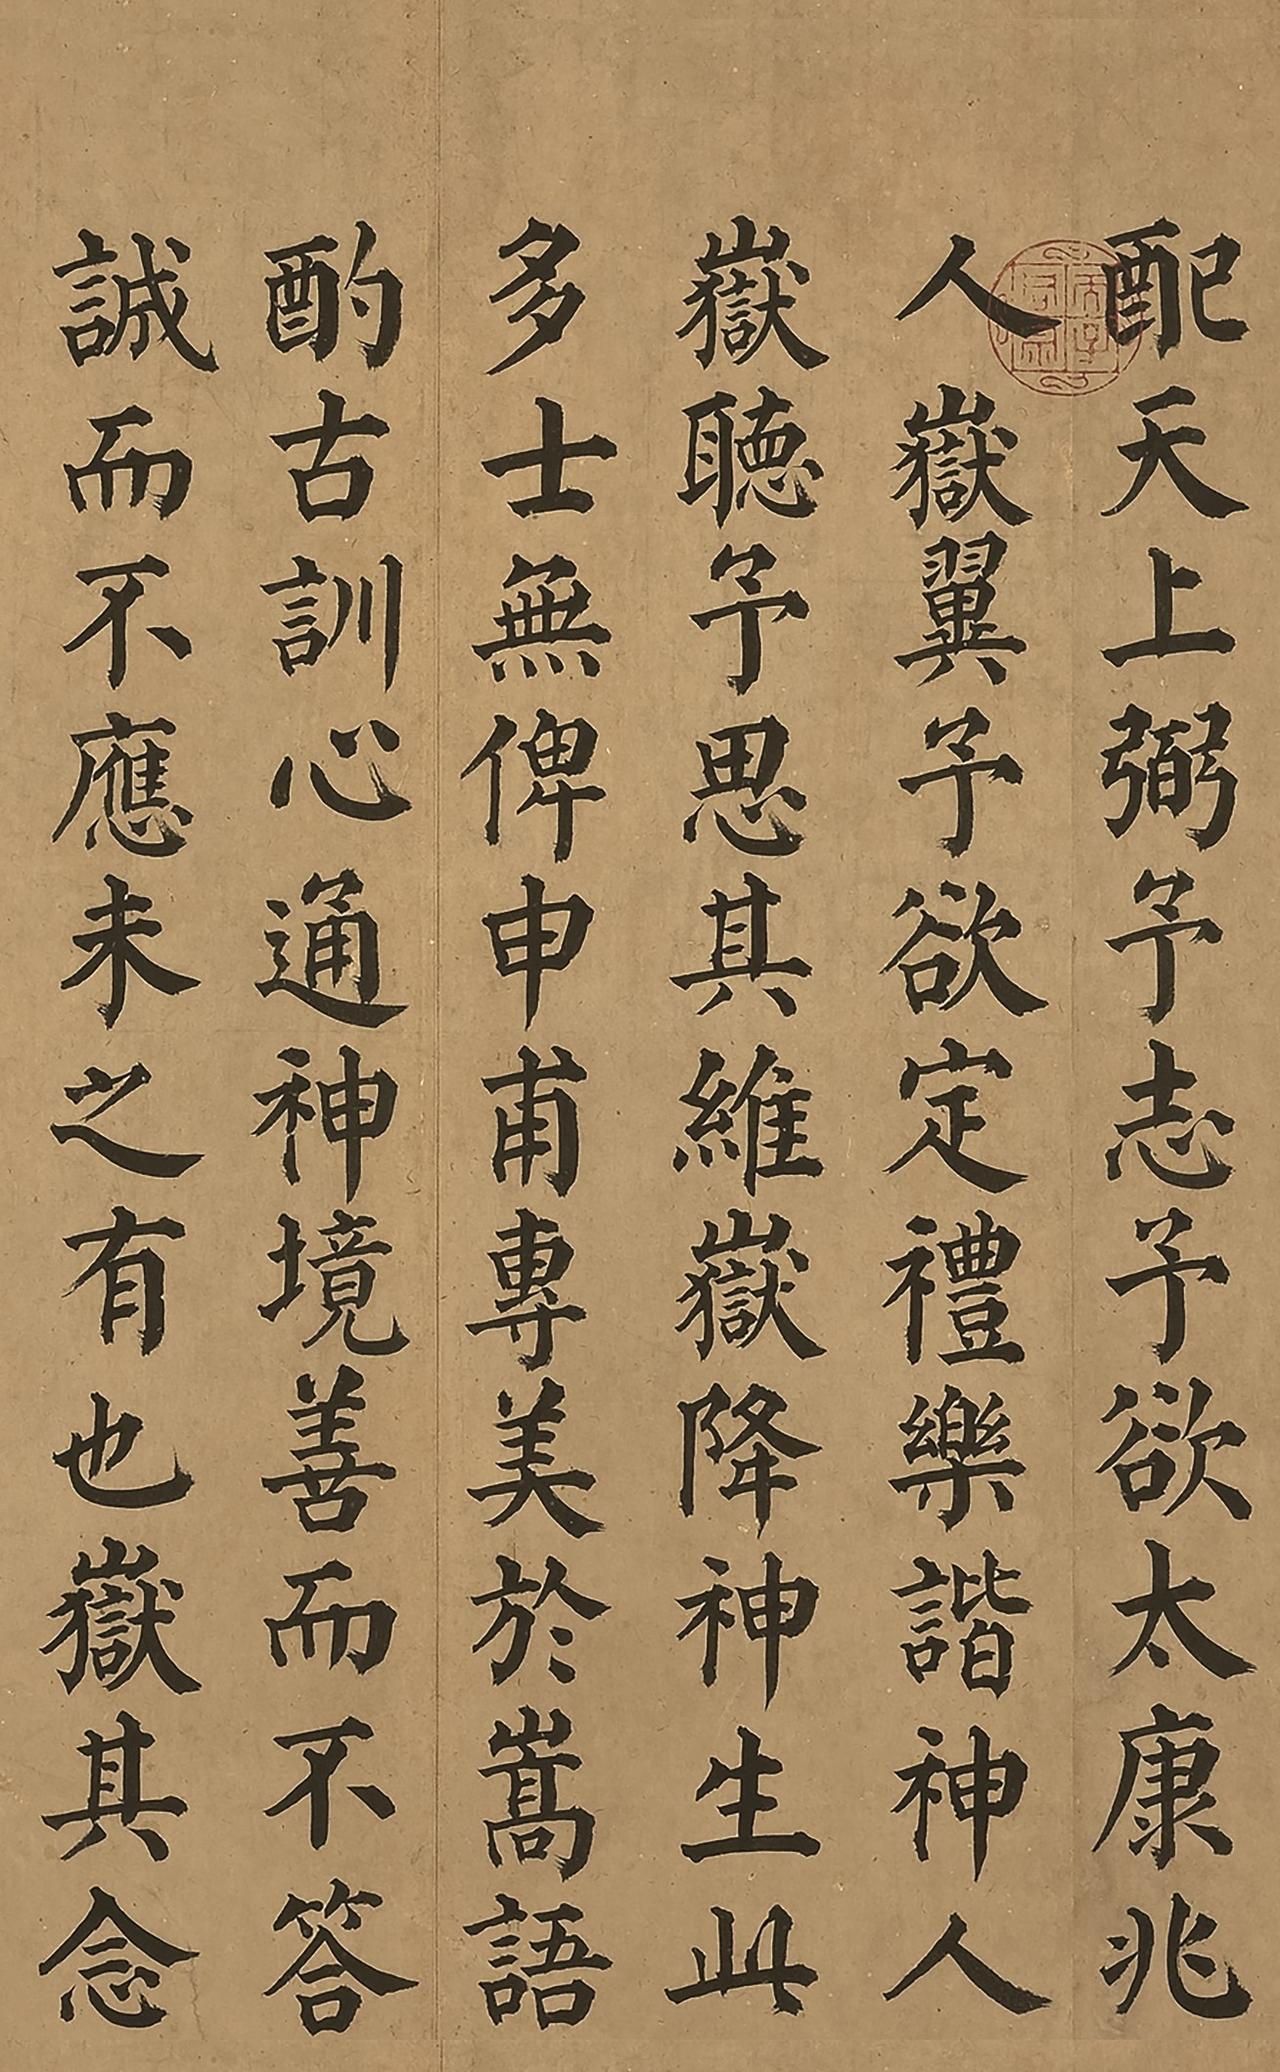 配天上弼予志予欲太康兆
人嶽翼予欲定禮樂諧神人
嶽聽予思其維嶽降神生此
多士無俾申甫專美於嵩語
酌古訓心通神境善而不答
誠而不應未之有也嶽其念